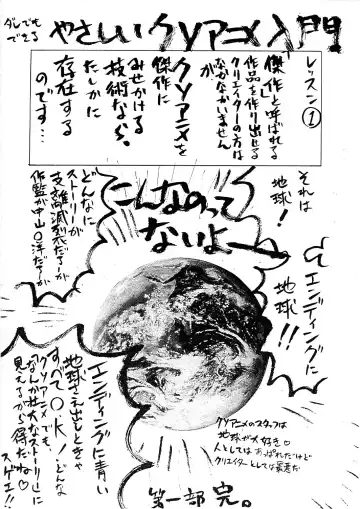 ダレでも
できる
やさしいクソアニメ入門
レッスン①
「傑作」と呼ばれる
作品を作り出せる
クリエイターの方は
なかなかいません
が、
クソアニメを
傑作に
みせかける
技術なら、
たしかに
存在する
のです…
それは
地球!
こんなのって
ないよー
どんなに
ストーリーが
支離滅裂だろーが
作監が中山○洋だろーが
エンディングに
地球!!
エンディングに青い
地球さえ出もときゃ
すべてO.K!どんな
クソアニメでも、
「なんか壮大なストーリーに
見えるから得だね♡
スゲエ!!」
クソアニメのスタッフは
地球が大好き♡
人としては あっぱれだけど
クリエイターとしては最悪だ
第一部 完。